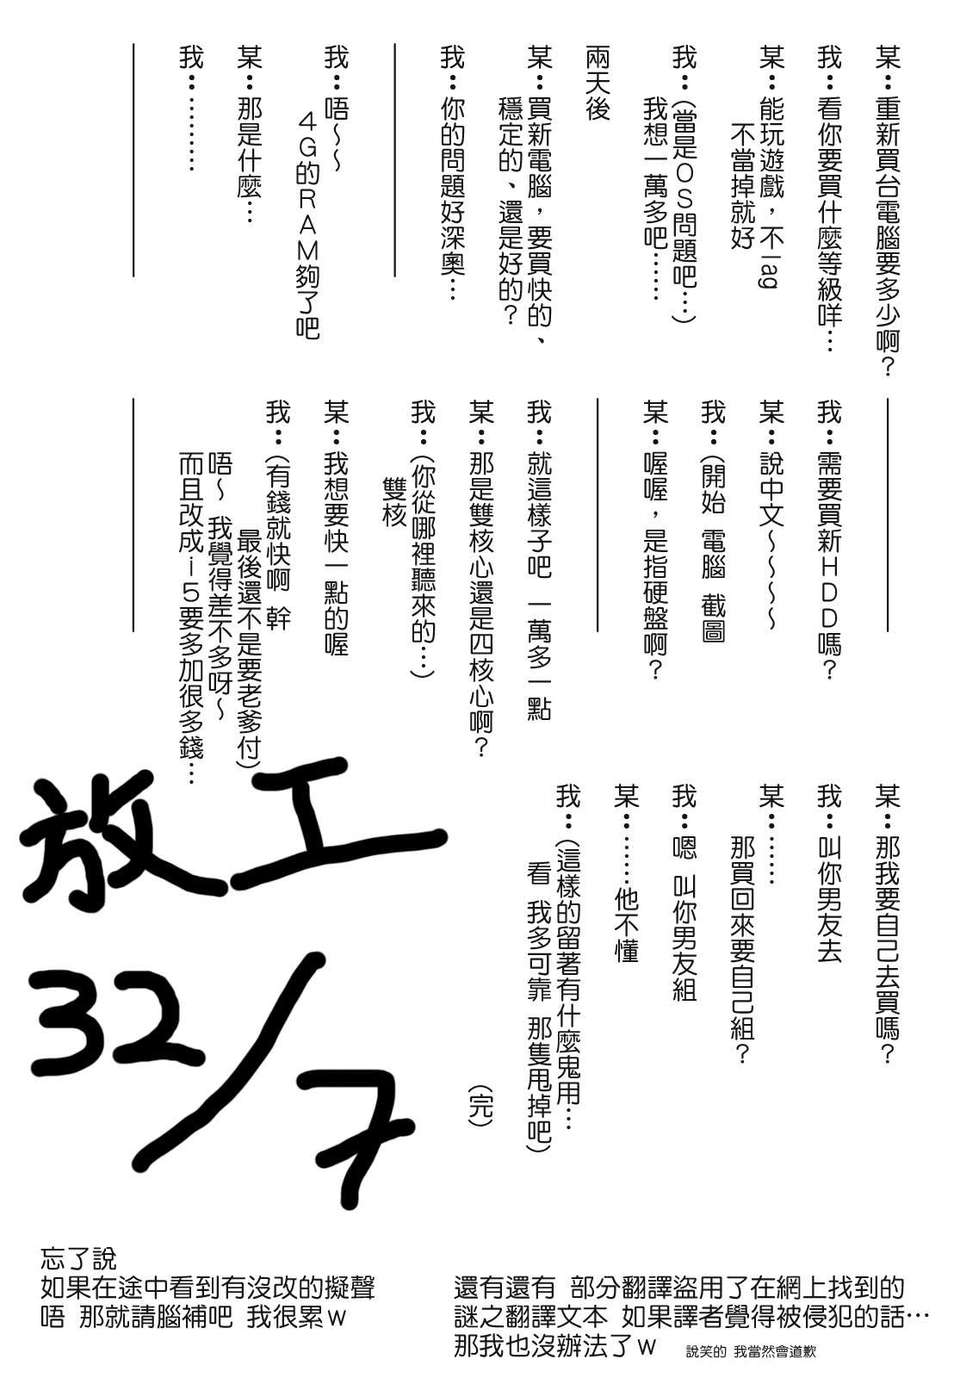 某：重新買台電腦要多少啊？
我：看你要買什麼等級咩…
某：能玩遊戲，不lag
不當掉就好
我：(當是OS問題吧…)
我想一萬多吧……
兩天後
某：買新電腦，要買快的、
穩定的、還是好的？
我：你的問題好深奧…
我：唔～～
4G的RAM夠了吧
某：那是什麼…
我：………
我：需要買新HDD嗎？
某：說中文～～～～
我：(開始 電腦 截圖
某：喔喔，是指硬盤啊？
我：就這樣子吧 一萬多一點
某：那是雙核心還是四核心啊？
我：(你從哪裡聽來的…)
雙核
某：我想要快一點的喔
我：(有錢就快啊 幹
最後還不是要老爹付)
唔～ 我覺得差不多呀～
而且改成i5要多加很多錢…
某：那我要自己去買嗎？
我：叫你男友去
某：……
那買回來要自己組？
我：嗯 叫你男友組
某：……他不懂
我：(這樣的留著有什麼鬼用…
看 我多可靠 那隻甩掉吧)
(完)
放工
32/7
忘了說
如果在途中看到有沒改的擬聲
唔 那就請腦補吧 我很累w
還有還有 部分翻譯盜用了在網上找到的
謎之翻譯文本 如果譯者覺得被侵犯的話…
那我也沒辦法了w 說笑的 我當然會道歉